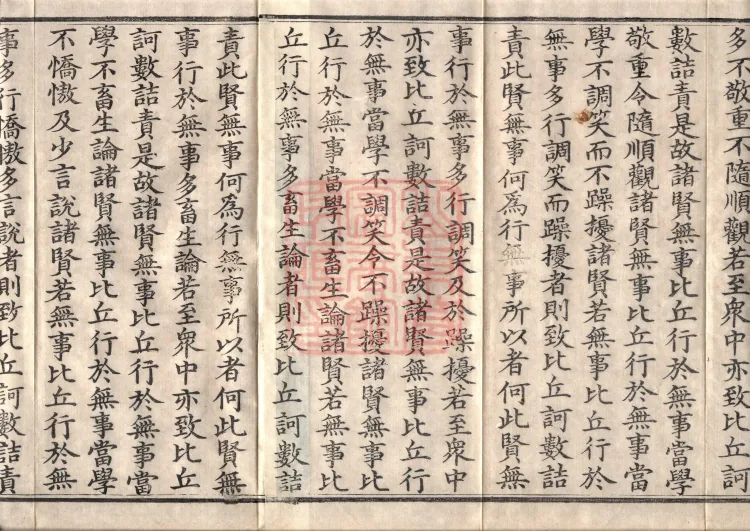 多不敬重不隨順觀若至衆中亦致比丘訶
數詰責是故諸賢無事比丘行於無事當學
敬重令隨順觀諸賢無事比丘行於無事當
學不調笑而不躁擾諸賢若無事比丘行於
無事多行調笑而躁擾者則致比丘訶數詰
責此賢無事何為行無事所以者何此賢無
事行於無事多行調笑及於躁擾若至衆中
亦致比丘訶數詰責是故諸賢無事比丘行
於無事當學不調笑令不躁擾諸賢無事比
丘行於無事當學不畜生論諸賢若無事比
丘行於無事多畜生論者則致比丘訶數詰
責此賢無事何為行無事所以者何此賢無
事行於無事多畜生論若至衆中亦致比丘
訶數詰責是故諸賢無事比丘行於無事當
學不畜生論諸賢無事比丘行於無事當學
不憍慠及少言說諸賢若無事比丘行於無
事多行憍慠多言說者則致比丘訶數詰責